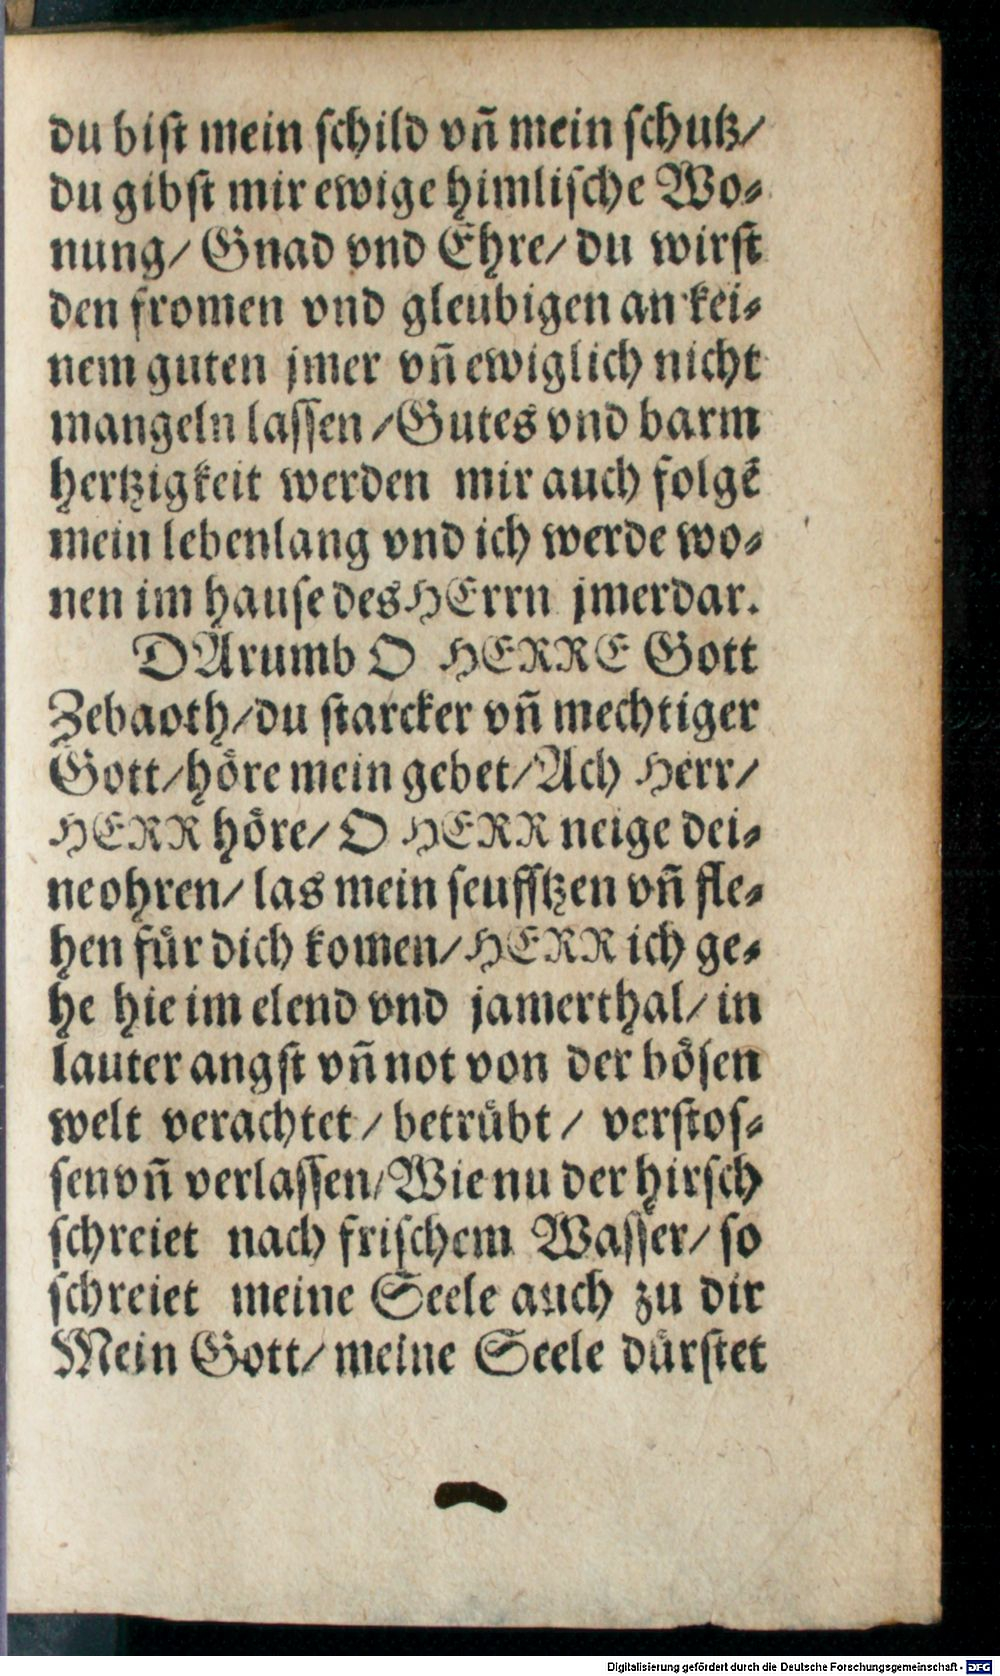 du biſt mein ſchild vñ mein ſchutz/
du gibſt mir ewige himliſche Wo⸗
nung/ Gnad vnd Ehre/ du wirſt
den fromen vnd gleubigen an kei⸗
nem guten jmer vñ ewiglich nicht
mangeln laſſen /Gutes vnd barm
hertzigkeit werden mir auch folgē
mein lebenlang vnd ich werde wo⸗
nen im hauſe des HErrn jmerdar.
DArumb O HERRE Gott
Zebaoth/du ſtarcker vñ mechtiger
Gott/höre mein gebet/Ach Herr/
HERR höre/ O HERR neige dei⸗
ne ohren/ las mein ſeufftzen vñ fle⸗
hen für dich komen/HERR ich ge⸗
he hie im elend vnd jamerthal/ in
lauter angſt vñ not von der böſen
welt verachtet/ betrübt/ verſtoſ⸗
ſen vñ verlaſſen/Wie nu der hirſch
ſchreiet nach friſchem Waſſer/ ſo
ſchreiet meine Seele auch zu dir
Mein Gott/ meine Seele dürſtet
Digitalisierung gefördert durch die Deutsche Forschungsgemeinschaft - DFG